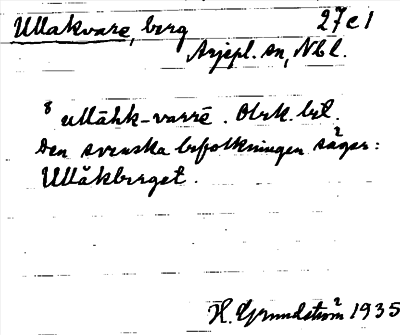 Ullakvare, berg 27 e 1
Arjepl. sn, Nbl.
8 ullāhk-varrē. Obek. bet.
Den svenska befolkningen säger:
Ullåkberget.
H. Grundström 1935